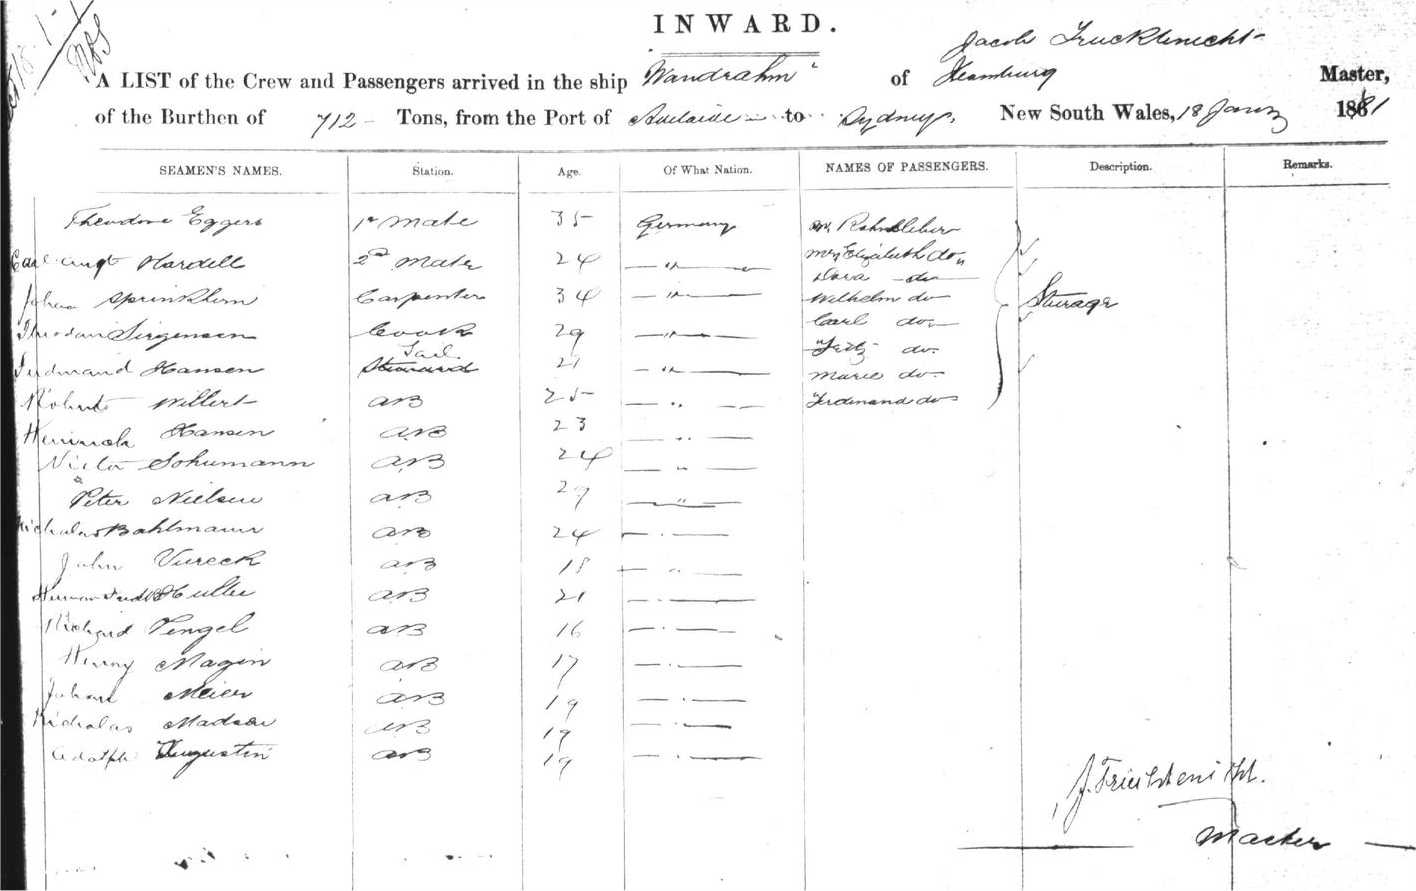 INWARD.
Jacob
A LIST of the Crew and Passengers arrived in the ship "Wandrahm" of Hamburg Master,
of the Burthen of 712 Tons, from the Port of Adelaide to Sydney, New South Wales, 18 Jany 1881
SEAMEN'S NAMES. Station. Age. Of What Nation. NAMES OF PASSENGERS. Description. Remarks.
Theodore Eggers 1st Mate 35 Germany Mr
Carl Augt Hardell 2nd Mate 24 " Mrs Elizabeth do
Dora do
Johan Carpenter 34 " Wilhelm do Steerage
Cook 29 " Carl do
Fritz do.
Ferdinand Hansen Steward 21 " Marie do.
Willert AB 25 " Ferdinand do
Heinrich Hansen AB 23 "
Schumann AB 24 "
Peter Nielsen AB 29 "
Nicholas Bahlmann AB 24 "
John Vureck AB 18 "
AB 21 "
Richard Pengel AB 16 "
Henry Magin AB 17 "
Johan Meier AB 19 "
Nicholas Madsen AB 19 "
Adolph Augustin AB 19 "
J.
Master